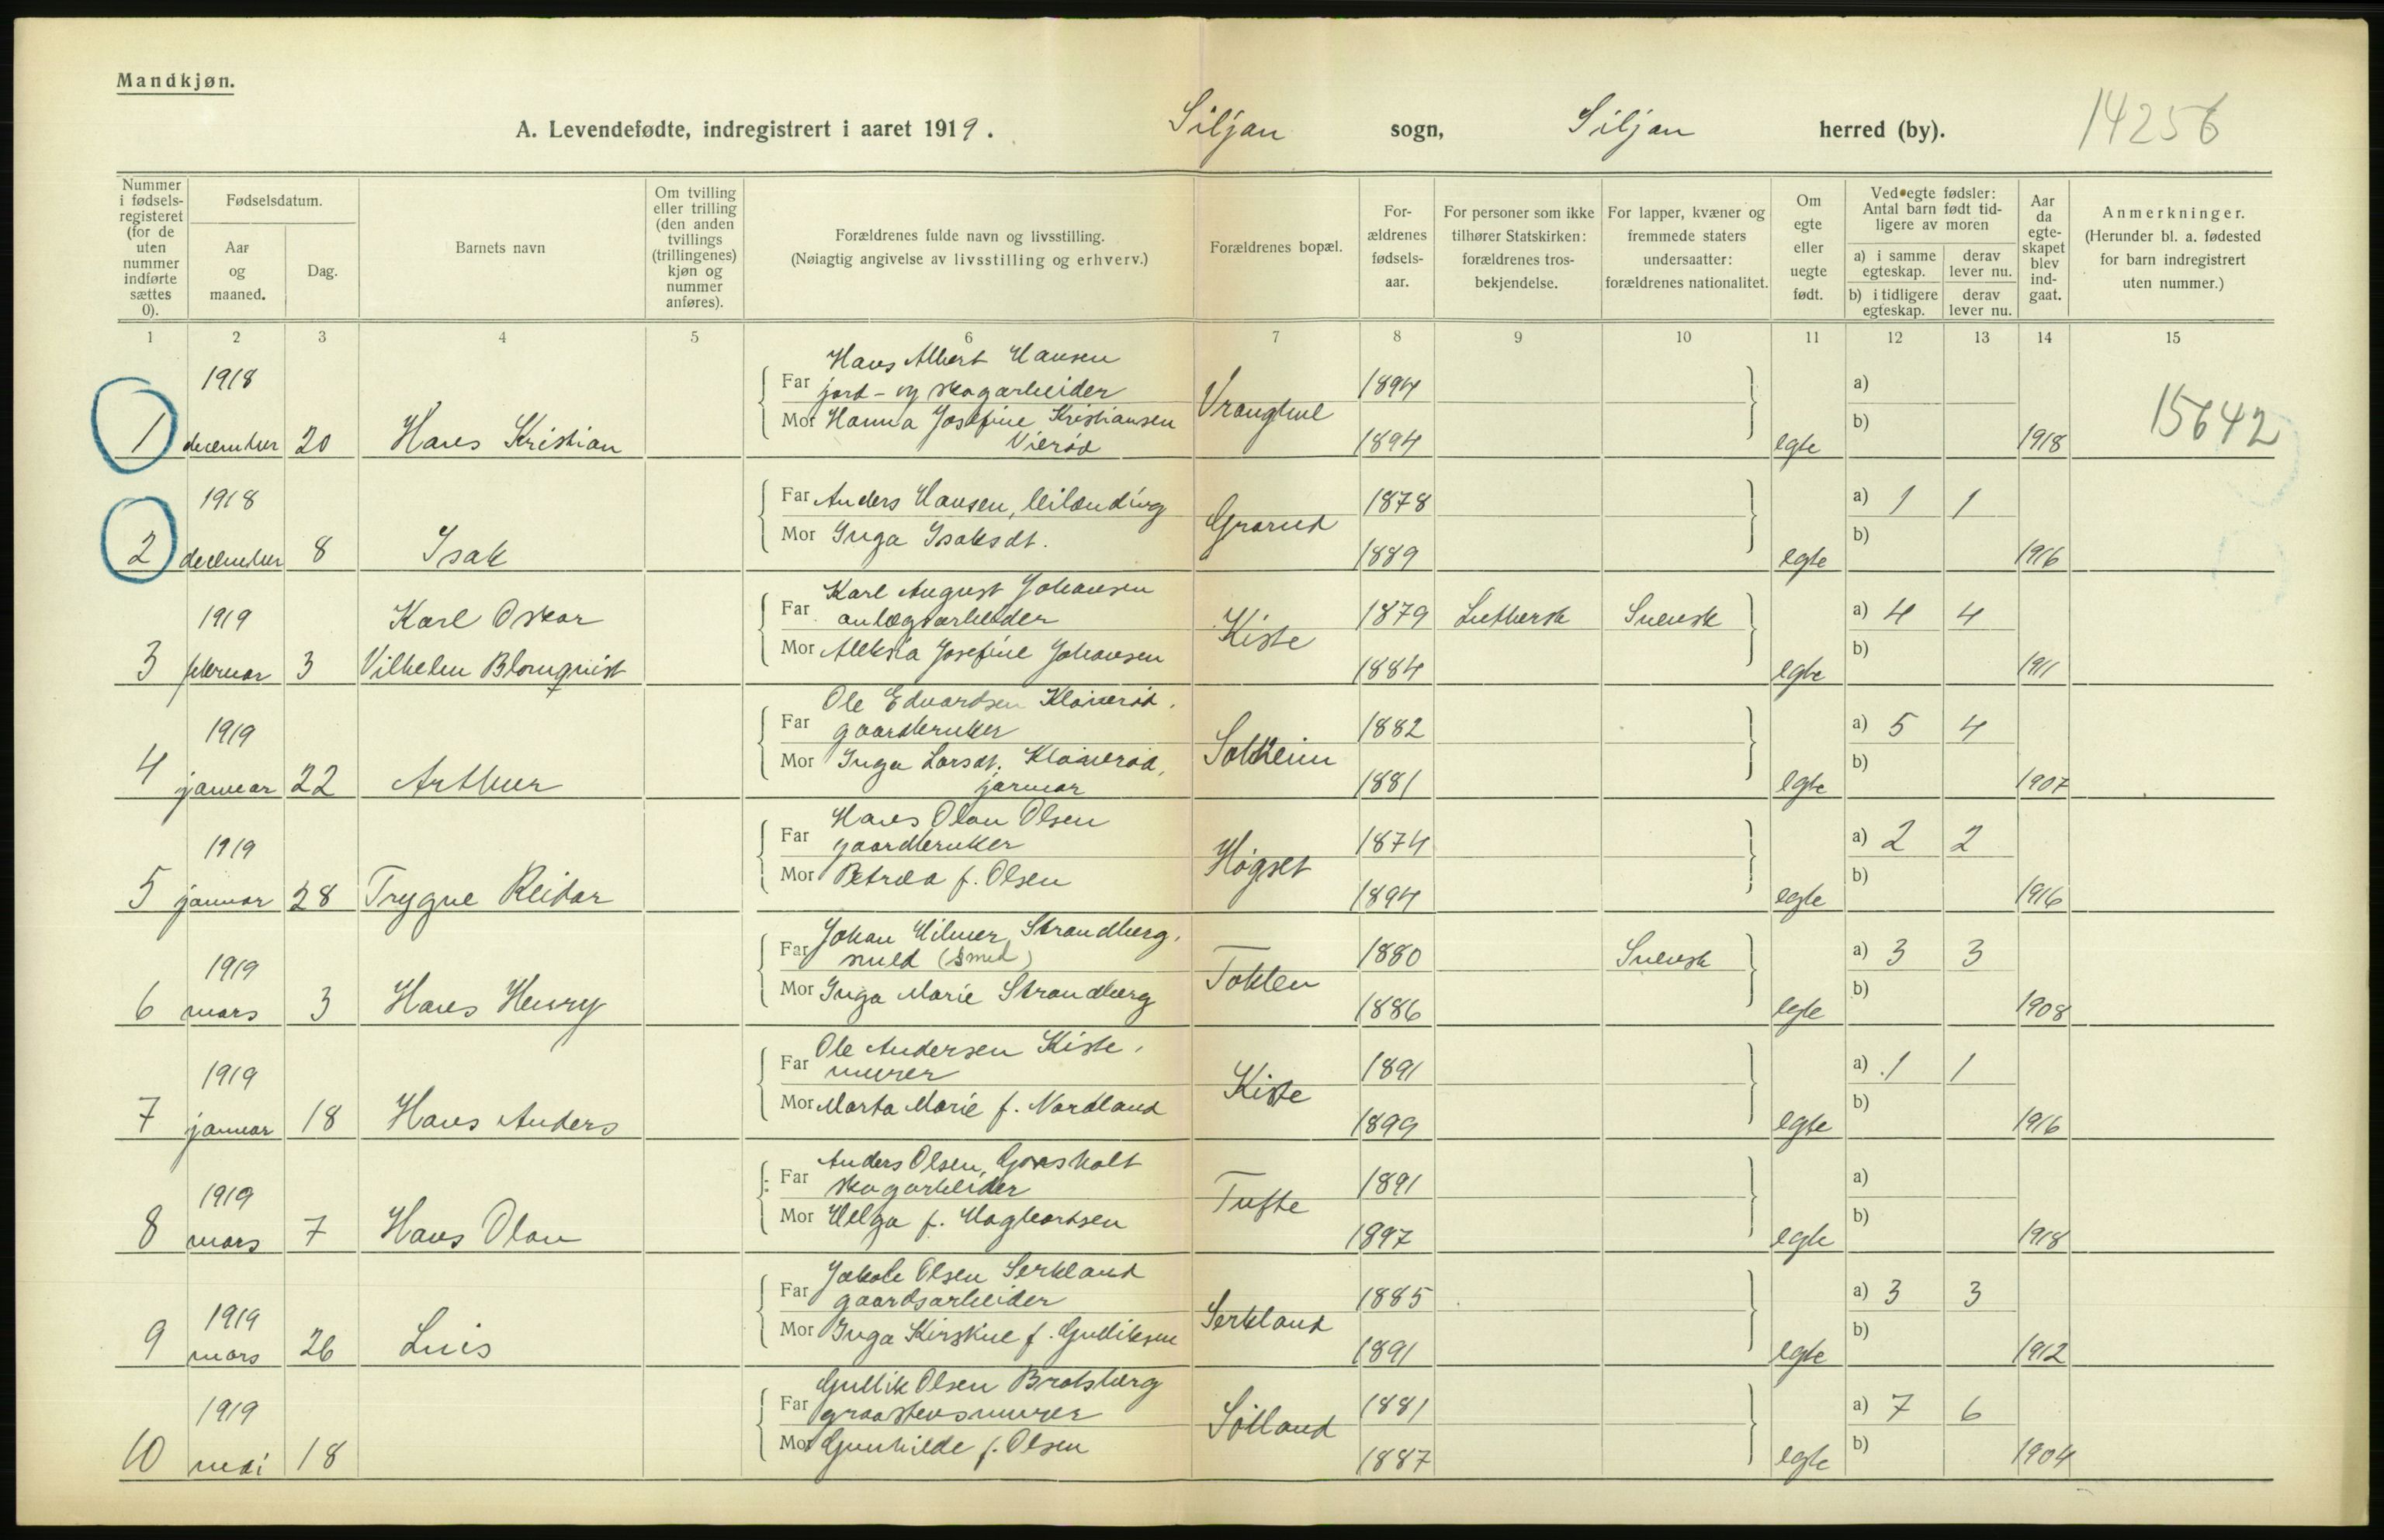 Mandkjøn.
A. Levendefødte, indregistrert i aaret 1919. Siljan sogn, Siljan herred (by). 14256
Nummer i fødselsregisteret (for de uten nummer indførte sættes 0).
Fødselsdatum.
Aar og maaned.
Dag.
Barnets navn
Om tvilling eller trilling (den anden tvillings (trillingenes) kjøn og nummer anføres).
Forældrenes fulde navn og livsstilling.
(Nøiagtig angivelse av livsstilling og erhverv.)
Forældrenes bopæl.
Forældrenes fødselsaar.
For personer som ikke tilhører Statskirken: forældrenes trosbekjendelse.
For lapper, kvæner og fremmede staters undersaatter: forældrenes nationalitet.
Om egte eller uegte født.
Ved egte fødsler: Antal barn født tidligere av moren
a) i samme egteskap. derav lever nu.
b) i tidligere egteskap. derav lever nu.
Aar da egteskapet blev indgaat.
Anmerkninger.
(Herunder bl. a. fødested for barn indregistrert uten nummer.)
1 2 3 4 5 6 7 8 9 10 11 12 13 14 15
1918
Hans Albert Hansen
Far jord- og skogarbeider 1894 a)
Mor Hanna Josefine Kristiansen b) 15642
1 december 20 Hans Kristian Vierød 1894 egte 1918
1918 Far Anders Hansen, leilænding 1878 a) 1 1
Mor Inga Isaksdt. Grorud b)
2 december 8 Isak 1889 egte 1916
Karl August Johansen
1919 Karl Oskar Far anlægsarbeider Kiste 1879 Luthersk Svensk a) 4 4
Mor Aleksia Josefine Johansen b)
3 februar 3 Vilhelm Blomquist 1884 egte 1911
Ole Edvardsen
1919 Far gaardbruker Solheim 1882 a) 5 4
Mor Inga Larsdt. b)
4 januar 22 Arthur januar 1881 egte 1907
Hans Olav Olsen
1919 Far gaardbruker Høgset 1874 a) 2 2
Mor Petrea f. Olsen b)
5 januar 28 Trygve Reidar 1894 egte 1916
Johan Hilmer Strandberg,
1919 Far smed (smed) 1880 Svensk a) 3 3
Mor Inga Marie Strandberg b)
6 mars 3 Hans Henry 1886 egte 1908
Ole Andersen Kiste,
1919 Far murer Kiste 1891 a) 1 1
Mor Marta Marie f. Nordland b)
7 januar 18 Hans Anders 1899 egte 1916
Anders Olsen, Gonsholt
1919 Far skogarbeider Tufte 1891 a)
Mor Helga f. Hagbartsen b)
8 mars 7 Hans Olav 1897 egte 1918
Jakob Olsen Serkland
1919 Far gaardsarbeider Serkland 1885 a) 3 3
Mor Inga Kirstine f. Gulliksen b)
9 mars 26 Luis 1891 egte 1912
Gullik Olsen Bratsberg
1919 Far graastensmurer Sølland 1881 a) 7 6
Mor Gunhilde f. Olsen b)
10 mai 18 1887 egte 1904